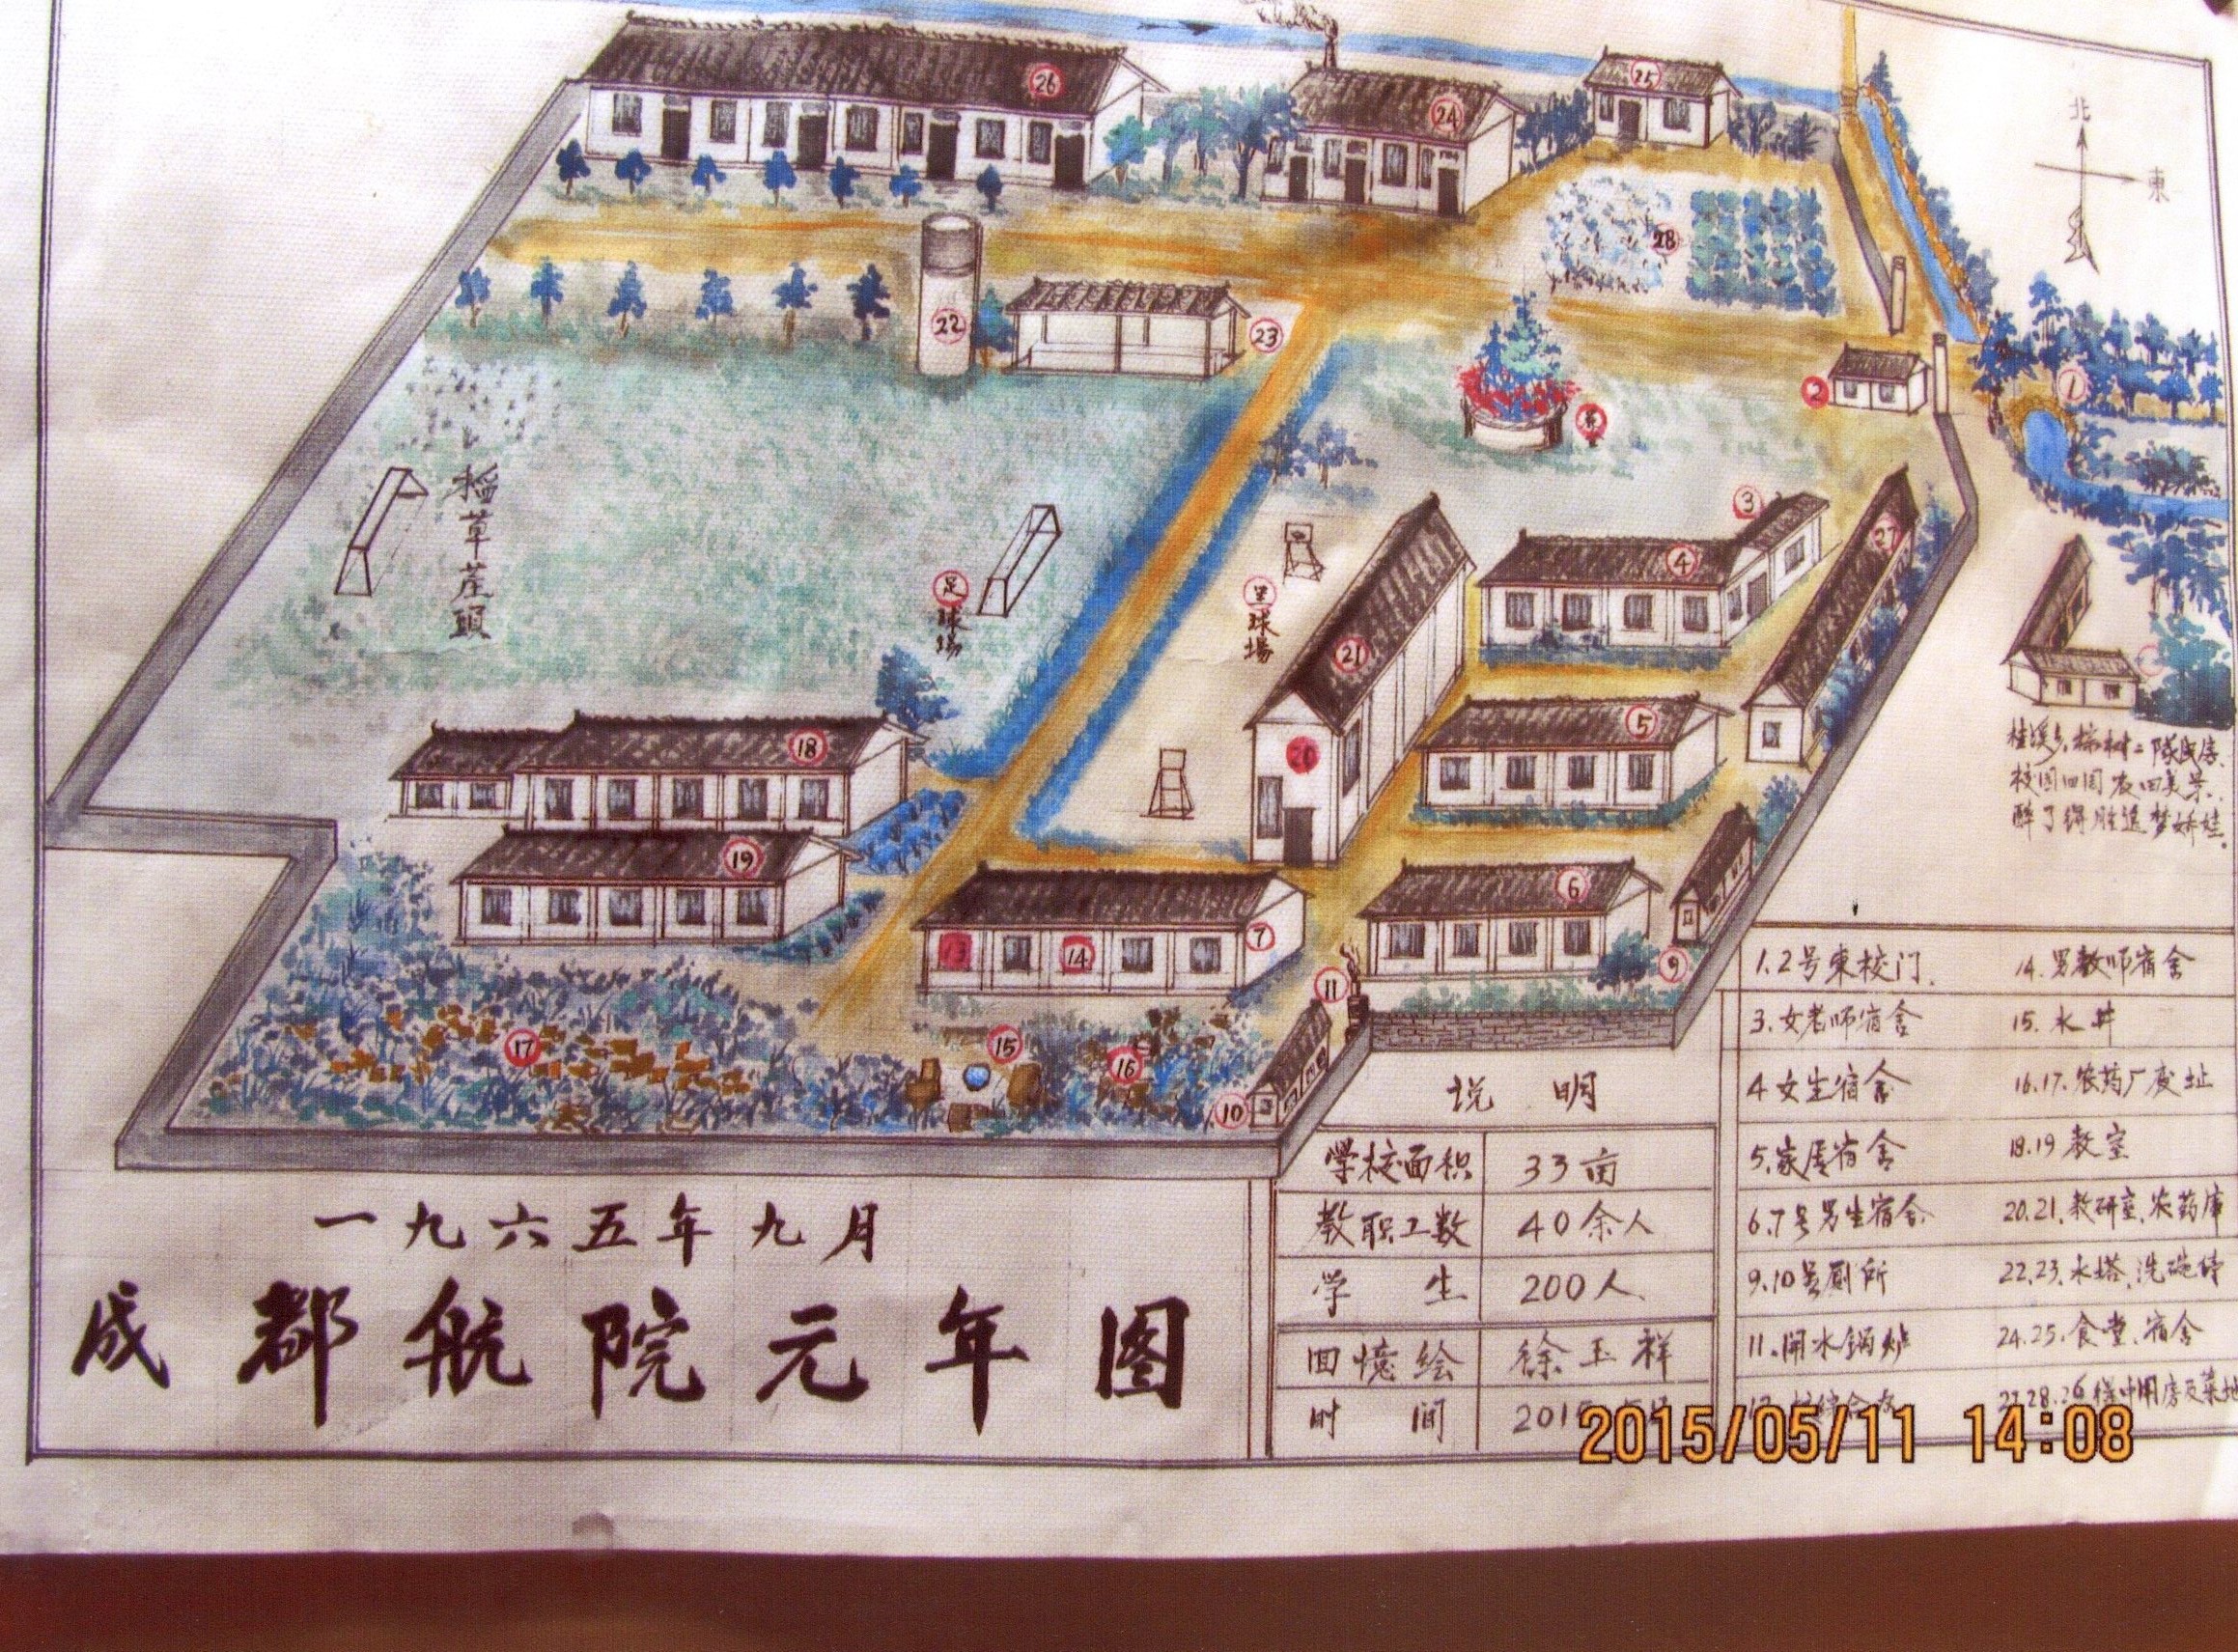 26
24
25
北
東
28
22
23
2
1
稻草
3
4
27
足球場
21
20
5
18
19
6
13
14
7
9
11
17
15
16
10
校园四周农田美景
1.2号東校门.
14.男教师宿舍
3.女老师宿舍
15.水井
说 明
4女生宿舍
16.17.农药厂废址
学校面积 33亩
5.家属宿舍
18.19教室
一九六五年九月
教职工数 40余人
6.7号男生宿舍
20.21.教研室.农药庫
学 生 200人
9.10号厕所
22.23.水塔.洗碗
成都航院元年图
回憶绘 徐玉祥
11.開水锅炉
24.25.食堂.宿舍
时 间
2015/05/11 14:08